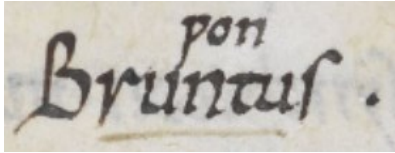 pon
Bruntus.